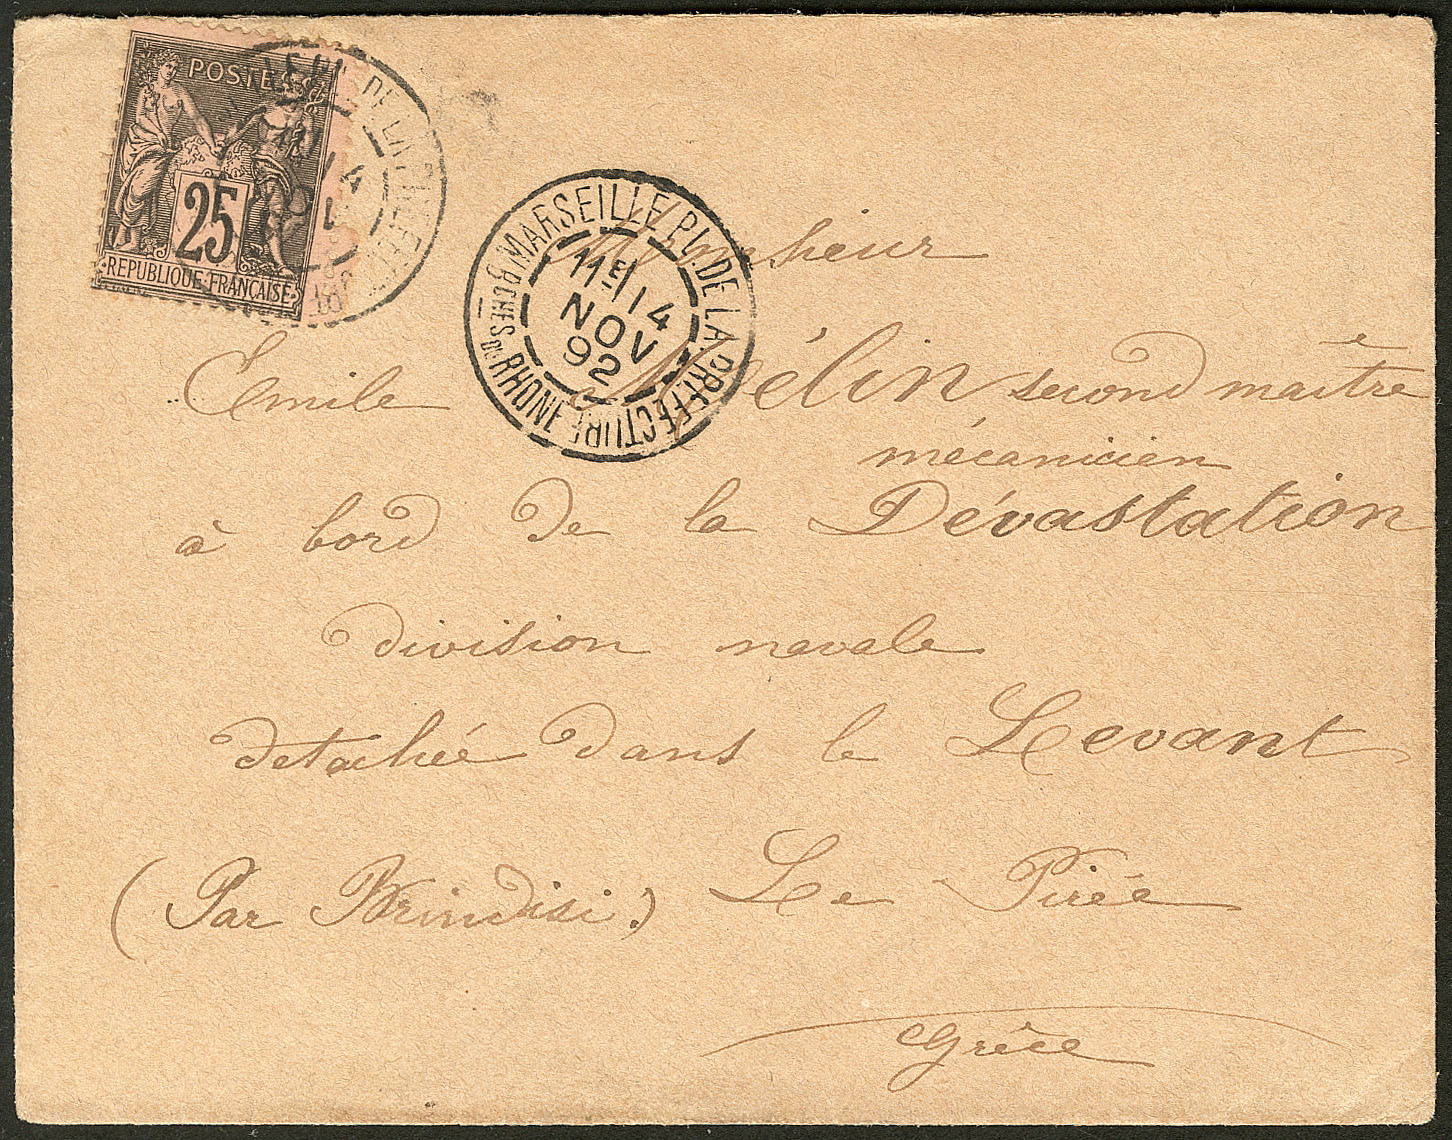 POSTE
25
REPUBLIQUE FRANÇAISE
DE LA PREFECT
14
MARSEILLE PL. DE LA PREFECTURE
BCHES DU RHONE
11E
14
NOV
92
Monsieur
Emile Mélin second maître
mécanicien
à bord de la Dévastation
division navale
detachée dans le Levant
(Par Brindisi) Le Pirée
Grèce